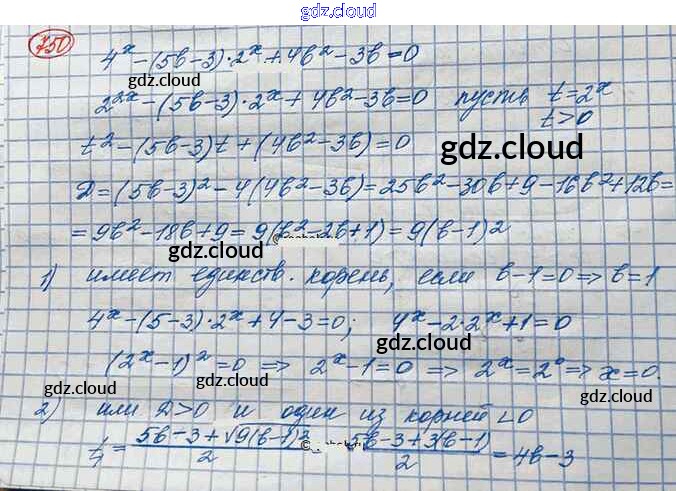 gdz.cloud
750
4^x - (5b-3)·2^x + 4b² - 3b = 0
gdz.cloud
2^{2x} - (5b-3)·2^x + 4b² - 3b = 0 пусть t = 2^x
t > 0
t² - (5b-3)t + (4b² - 3b) = 0
gdz.cloud
D = (5b-3)² - 4(4b² - 3b) = 25b² - 30b + 9 - 16b² + 12b =
= 9b² - 18b + 9 = 9(b² - 2b + 1) = 9(b-1)²
gdz.cloud
1) имеет единств. корень, если b-1=0 => b=1
4^x - (5-3)·2^x + 4 - 3 = 0; 4^x - 2·2^x + 1 = 0
gdz.cloud
(2^x - 1)² = 0 => 2^x - 1 = 0 => 2^x = 2^0 => x = 0.
gdz.cloud gdz.cloud gdz.cloud
2) или D>0 и один из корней <0
t₁ = (5b-3+√9(b-1)²)/2 = (5b-3+3(b-1))/2 = 4b-3